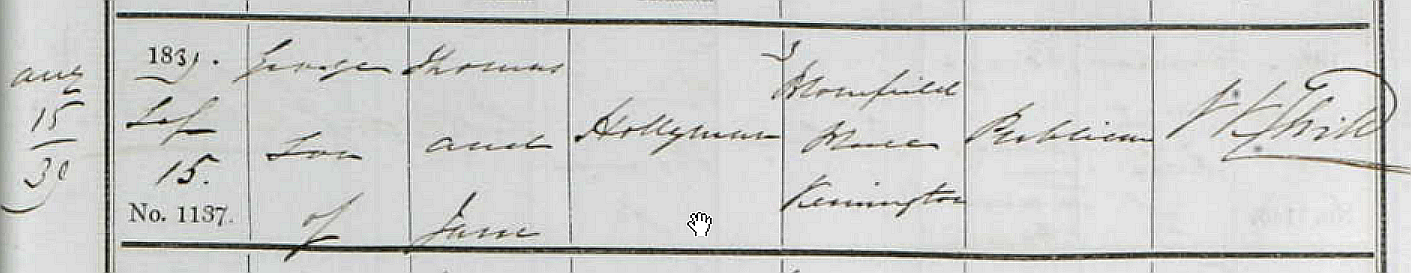 Aug
15
39
1839.
Sep
15.
No. 1137.
George
Son
of
Thomas
and
Jane
Hollyman
3
Bloomfield
Place
Kennington
Publican